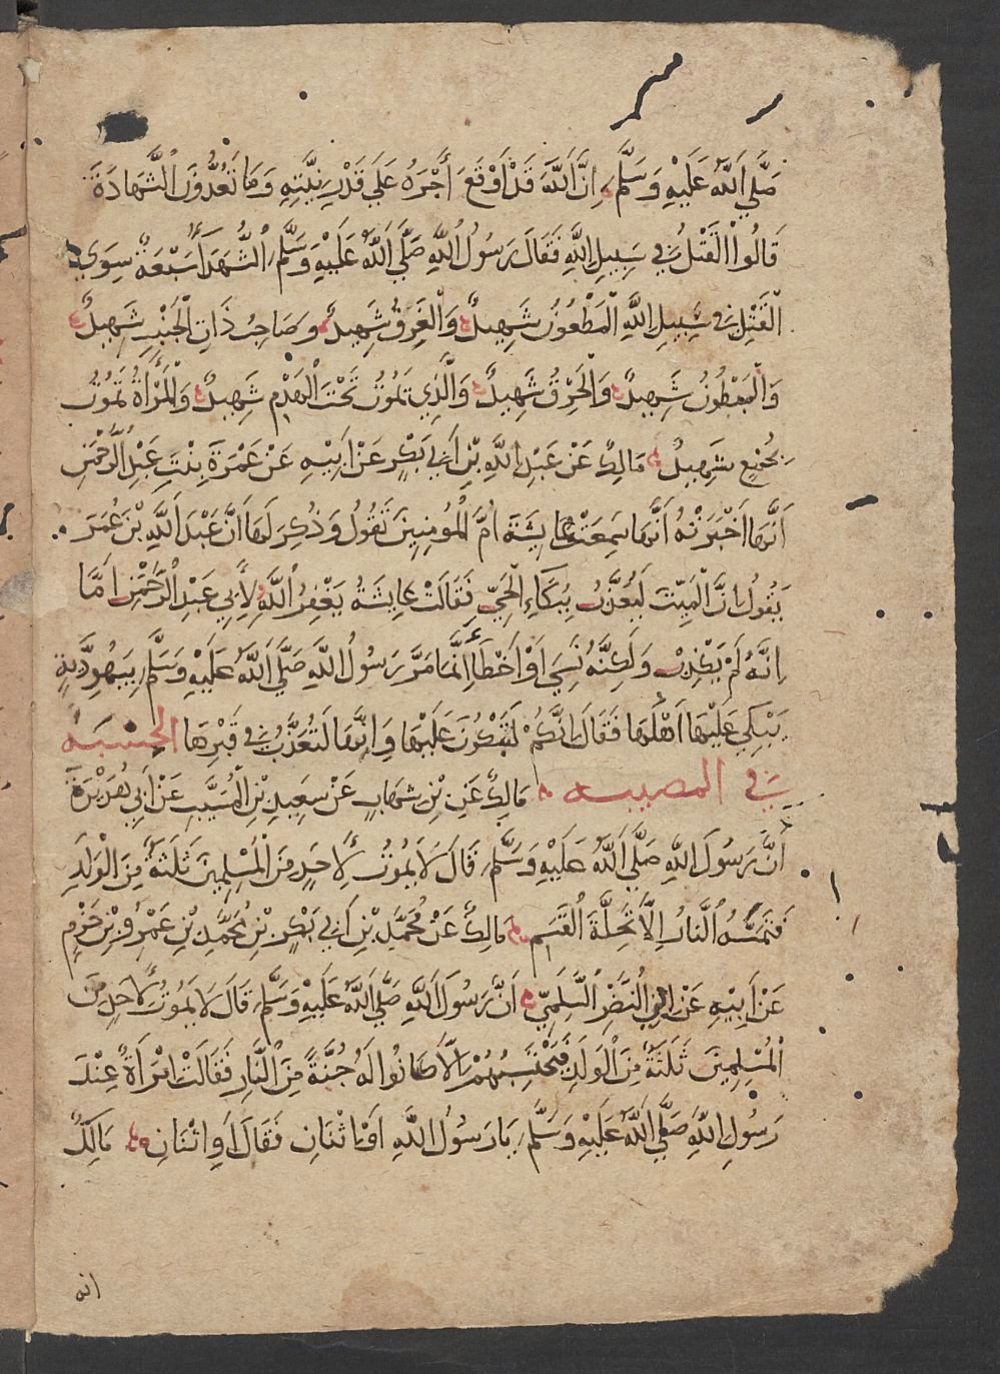 صَلَّي اَللَّهُ عَلَيْهِ وَسَلَّمَ اِنَّ اَللَّهَ قَدْ اَوْقَعَ أَجْرَهُ عَلَي قَدْرِ نِيَّتِهِ وَمَا تَعُدُّونَ الْشَّهَادَةَ
قَالُوا الْقَتْلُ فِي سَبِيلِ اللَّهِ فَقَالَ رَسُولُ اُللَّهِ صَلَّي اَللَّهُ عَلَيْهِ وَسَلَّمَ اُلشُّهَدَآءُ سَبْعَةٌ سِوَي
الْقَتْلِ فِي سَبِيلِ اللَّهِ الْمَطْعُونُ شَهِيدٌ وَالْغَرِقُ شَهِيدٌ وَصَاحِبُ ذَاتِ الْجَنْبِ شَهِيدٌ
وَالْمَبْطُونُ شَهِيدٌ وَالْحَرِقُ شَهِيدٌ وَالَّذِي يَمُوتُ تَحْتَ الْهَدْمِ شَهِيدٌ وَالْمَرْأَةُ تَمُوتُ
بِجُمْعٍ شَهِيدٌ مَالِكٌ عَنْ عَبْدِ اِللَّهِ بْنِ اَبِي بَكْرٍ عَنْ اَبِيْهِ عَنْ عَمْرَةَ بِنْتِ عَبْدِ الرَّحْمَنِ
اَنَّهَا اَخْبَرَتْهُ اَنَّهَا سَمِعَتْ عَايِشَةَ اُمَّ الْمُومِنِينَ تَقُولُ وَذُكِرَ لَهَا اَنَّ عَبْدَ اَللَّهِ بْنَ عُمَرَ
يَقُولُ اِنَّ الْمَيِّتَ لَيُعَذَّبُ بِبُكَاءِ الْحَيِّ فَقَالَتْ عَايِشَةُ يَغْفِرُ اُللَّهُ لِأَبِي عَبْدِ الرَّحْمَنِ اَمَّا
اِنَّهُ لَمْ يَكْذِبْ وَلَكِنَّهُ نَسِيَ اَوْ اَخْطَأَ إِنَّمَا مَرَّ رَسُولُ اُللَّهِ صَلَّي اَللَّهُ عَلَيْهِ وَسَلَّمَ بِيَهُودِيَّةٍ
يَبْكِي عَلَيْهَا اَهْلُهَا فَقَالَ اِنَّكُمْ لَتَبْكُونَ عَلَيْهَا وَاِنَّهَا لَتُعَذَّبُ فِي قَبْرِهَا الحسبه
في المصيبه مَالِكٌ عَنِ بْنِ شِهَابٍ عَنْ سَعِيدِ بْنِ الْمُسَيَّبِ عَنْ اَبِي هُرَيْرَةَ
أَنَّ رَسُولَ اَللَّهِ صَلَّي اَللَّهُ عَلَيْهِ وَسَلَّمَ قَالَ لَا يَمُوتُ لِأَحَدٍ مِنَ الْمُسْلِمِينَ ثَلَثَةٌ مِنَ الْوَلَدِ
فَتَمَسَّهُ اُلنَّارُ اِلَّا تَحِلَّةَ الْقَسَمِ مَالِكٌ عَنْ مُحَمَّدِ بْنِ اَبِي بَكْرِ بْنِ مُحَمَّدِ بْنِ عَمْرِو بْنِ حَزْمٍ
عَنْ اَبِيْهِ عَنْ ابِي النَّضْرِ السَّلَمِيِّ اَنَّ رَسُولَ اَللَّهِ صَلَّي اَللَّهُ عَلَيْهِ وَسَلَّمَ قَالَ لَا يَمُوتُ لِأَحَدٍ مِنَ
الْمُسْلِمِينَ ثَلَثَةٌ مِنَ الْوَلَدِ فَيَحْتَسِبُهُمْ اِلَّا كَانُوا لَهُ جُنَّةً مِنَ النَّارِ فَقَالَتْ امْرَأَةٌ عِنْدَ
رَسُولِ اللَّهِ صَلَّي اَللَّهُ عَلَيْهِ وَسَلَّمَ يَا رَسُولَ اللَّهِ اَوَ اثْنَانِ فَقَالَ اَوِ اثْنَانِ مَالِكٌ
انه